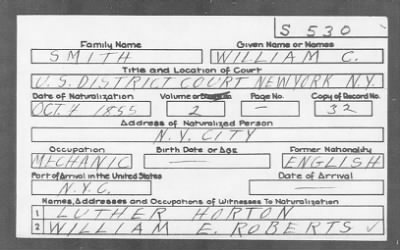 S 530
Family Name Given Name or Names
SMITH WILLIAM C.
Title and Location of Court
U.S. DISTRICT COURT NEW YORK N.Y.
Date of Naturalization Volume or Page No. Copy of Record No.
OCT. 4 1855 2 — 32
Address of Naturalized Person
N.Y. CITY
Occupation Birth Date or Age Former Nationality
MECHANIC — ENGLISH
Port of Arrival in the United States Date of Arrival
N.Y.C. —
Names, Addresses and Occupations of Witnesses To Naturalization
1 LUTHER HORTON
2 WILLIAM E. ROBERTS ✓